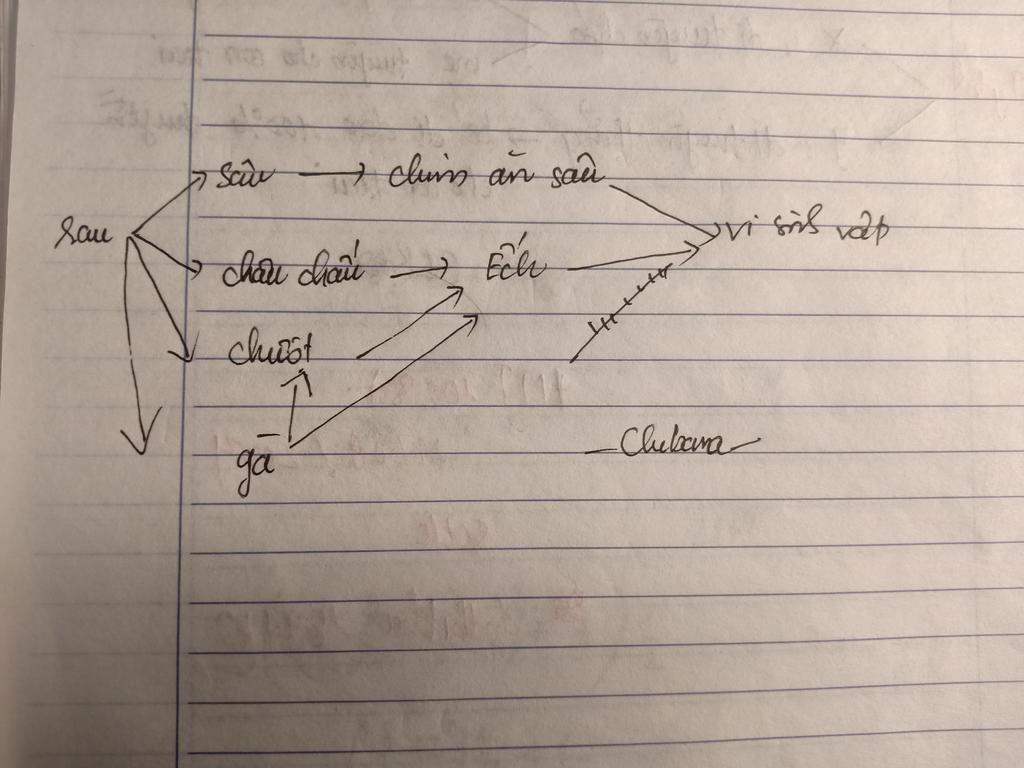 sâu → chim ăn sâu
rau vi sinh vật
châu chấu → Ếch
chuột
gà